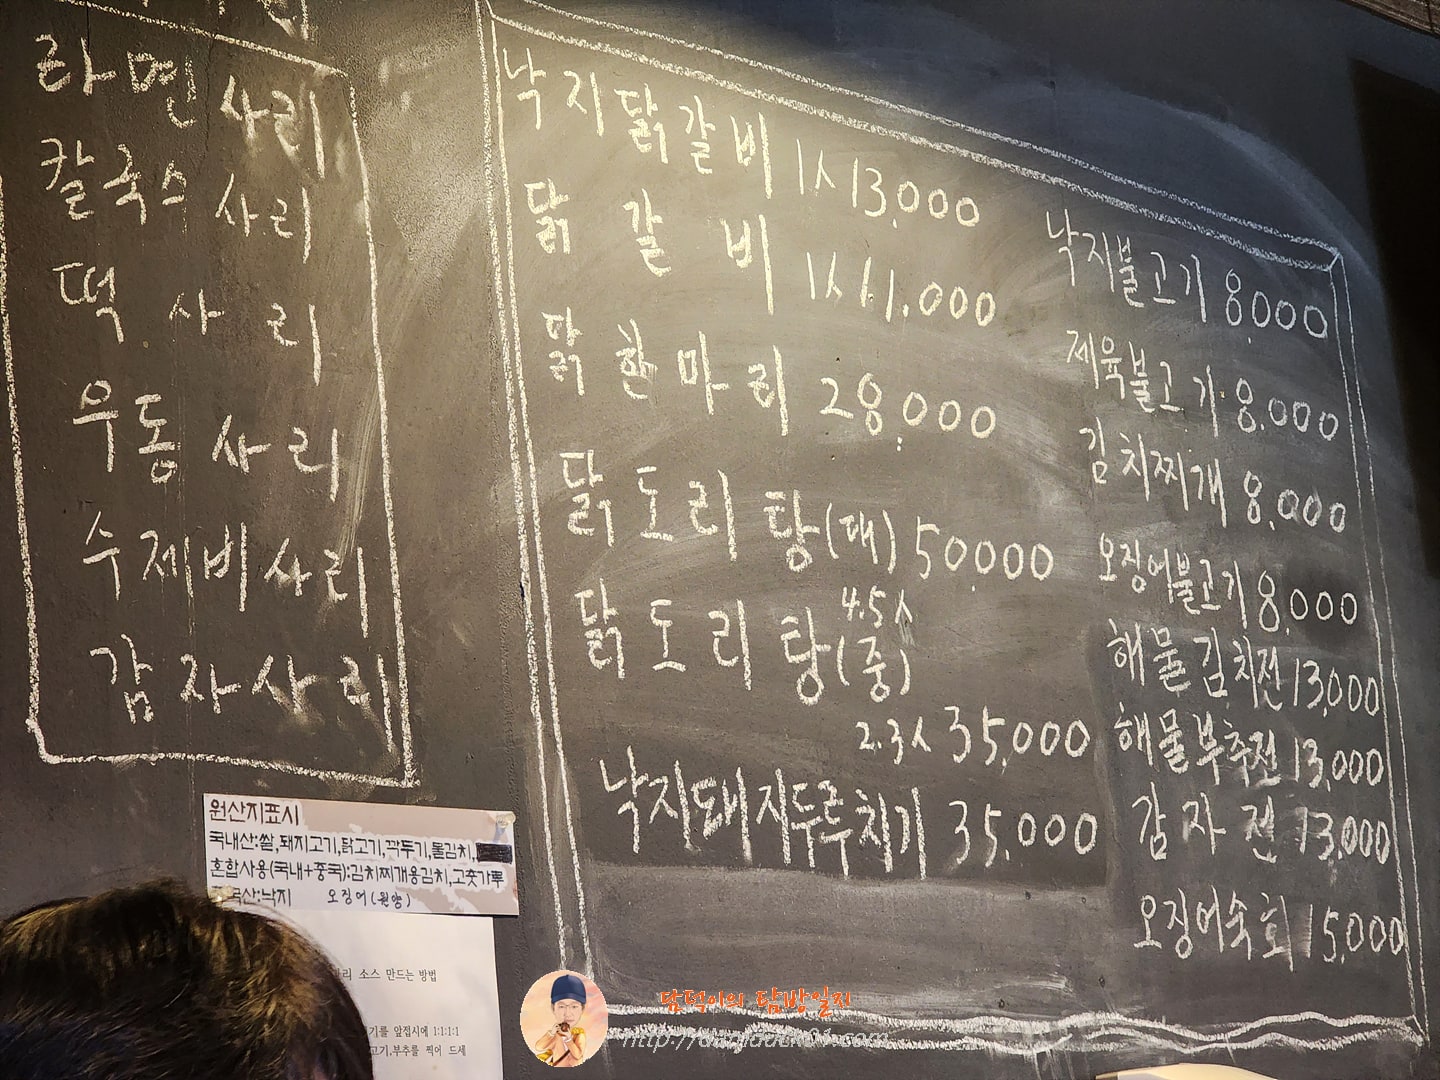 라면사리
칼국수사리
떡사리
우동사리
수제비사리
감자사리
낙지닭갈비 1人13,000
닭갈비 1人11,000
닭한마리 28,000
닭도리탕(대) 50,000
4.5人
닭도리탕(중)
2.3人 35,000
낙지돼지두루치기 35,000
낙지불고기 8,000
제육불고기 8,000
김치찌개 8,000
오징어불고기 8,000
해물김치전 13,000
해물부추전 13,000
감자전 13,000
오징어숙회 15,000
원산지표시
국내산:쌀,돼지고기,닭고기,깍두기,물김치,
혼합사용(국내+중국):김치찌개용김치,고춧가루
국산:낙지 오징어(원양)
소스 만드는 방법
기를 앞접시에 1:1:1:1
고기,부추를 찍어 드세
담덕이의 탐방일지